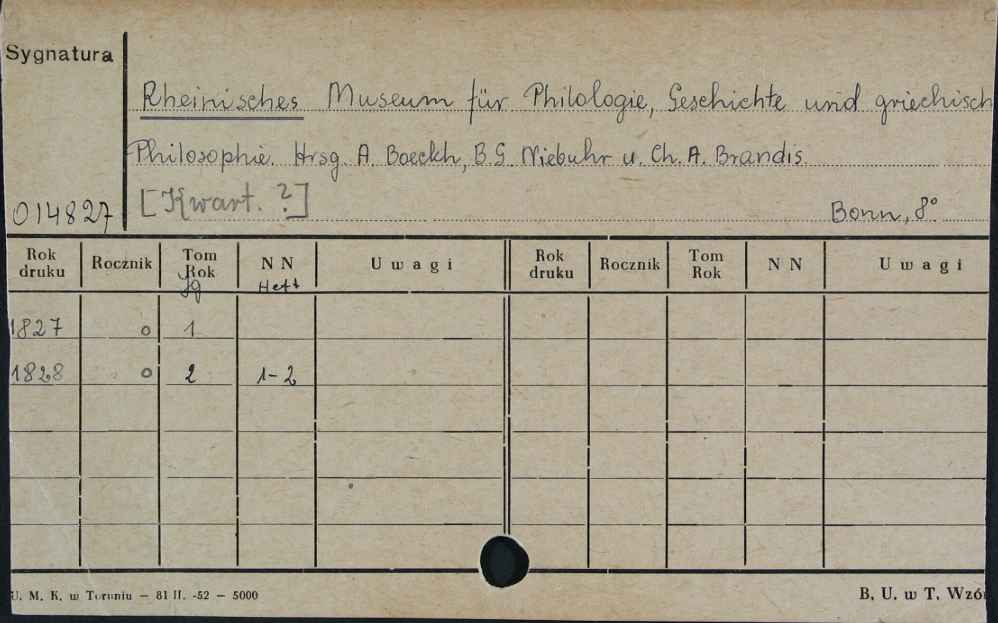 Sygnatura
Rheinisches Museum für Philologie, Geschichte und griechisch
Philosophie. Hrsg. A. Boeckh, B.G. Niebuhr u. Ch. A. Brandis
[Kwart. ?]
014827 Bonn, 8°
Rok druku Rocznik Tom Rok Jg N N Heft U w a g i Rok druku Rocznik Tom Rok N N U w a g i
1827 o 1
1828 o 2 1-2
U. M. K. w Toruniu — 81 II. -52 — 5000 B. U. w T. Wzó